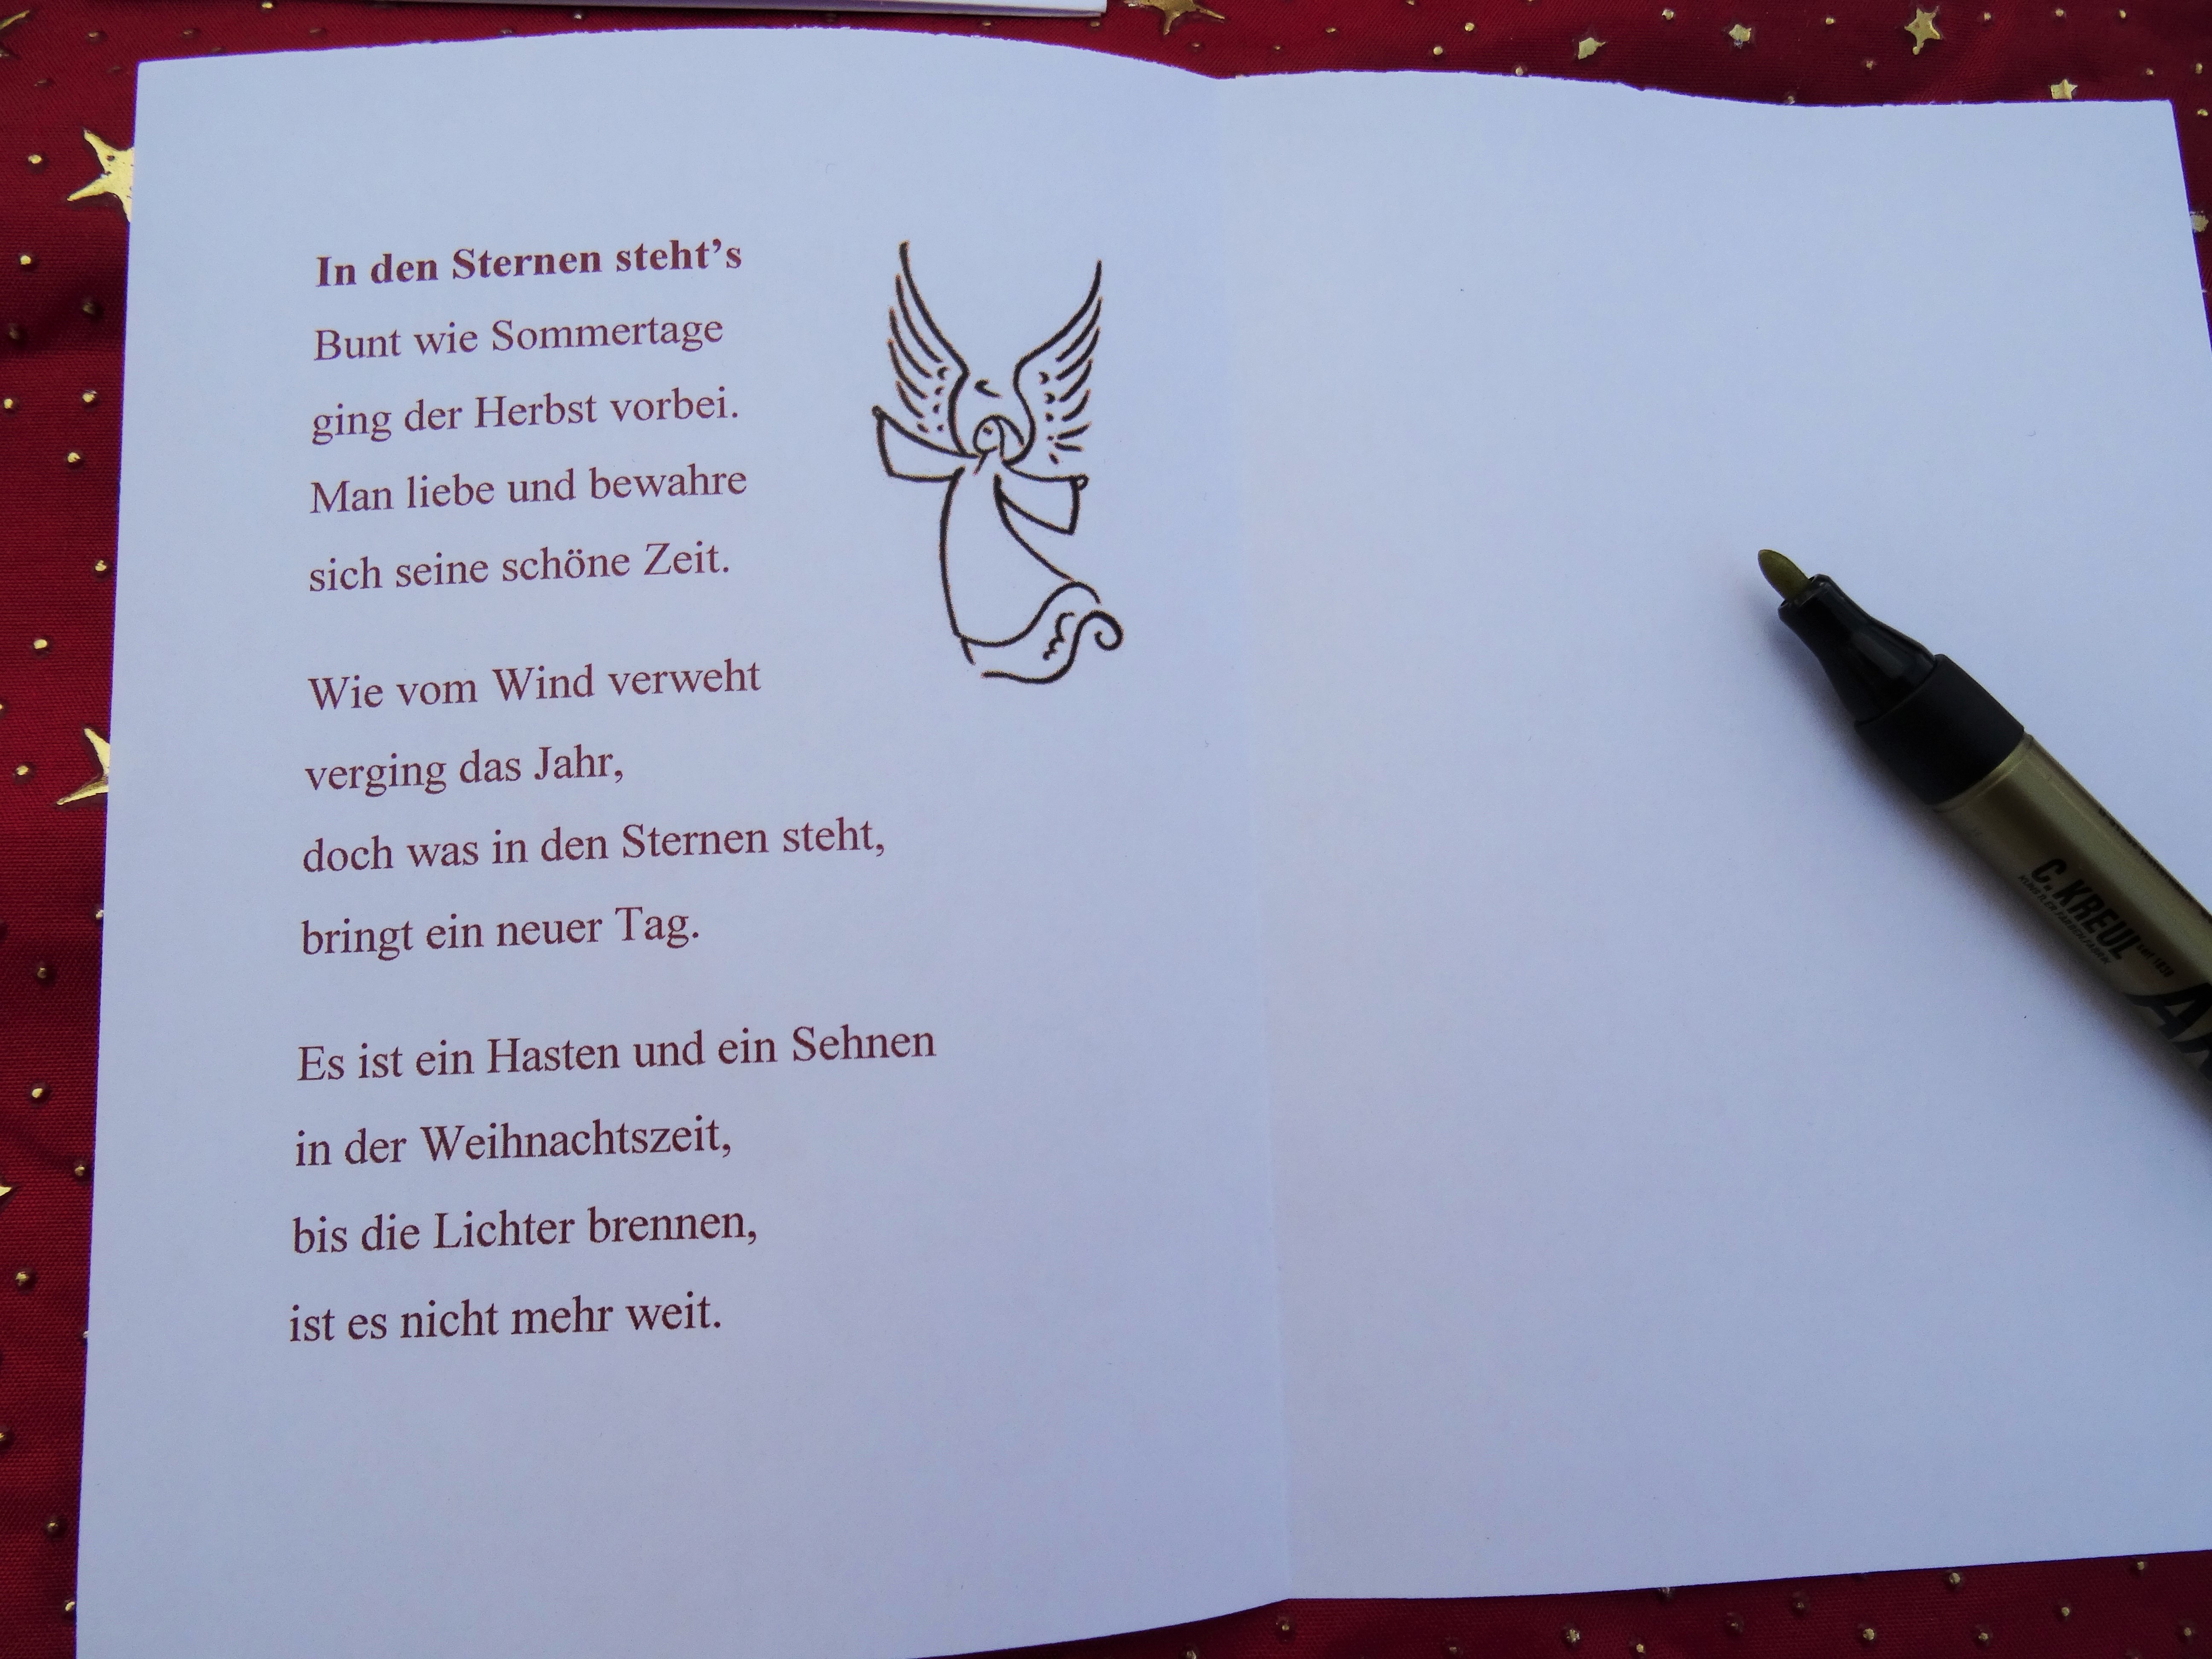 In den Sternen steht’s
Bunt wie Sommertage
ging der Herbst vorbei.
Man liebe und bewahre
sich seine schöne Zeit.
Wie vom Wind verweht
verging das Jahr,
doch was in den Sternen steht,
bringt ein neuer Tag.
Es ist ein Hasten und ein Sehnen
in der Weihnachtszeit,
bis die Lichter brennen,
ist es nicht mehr weit.
C. KREUL